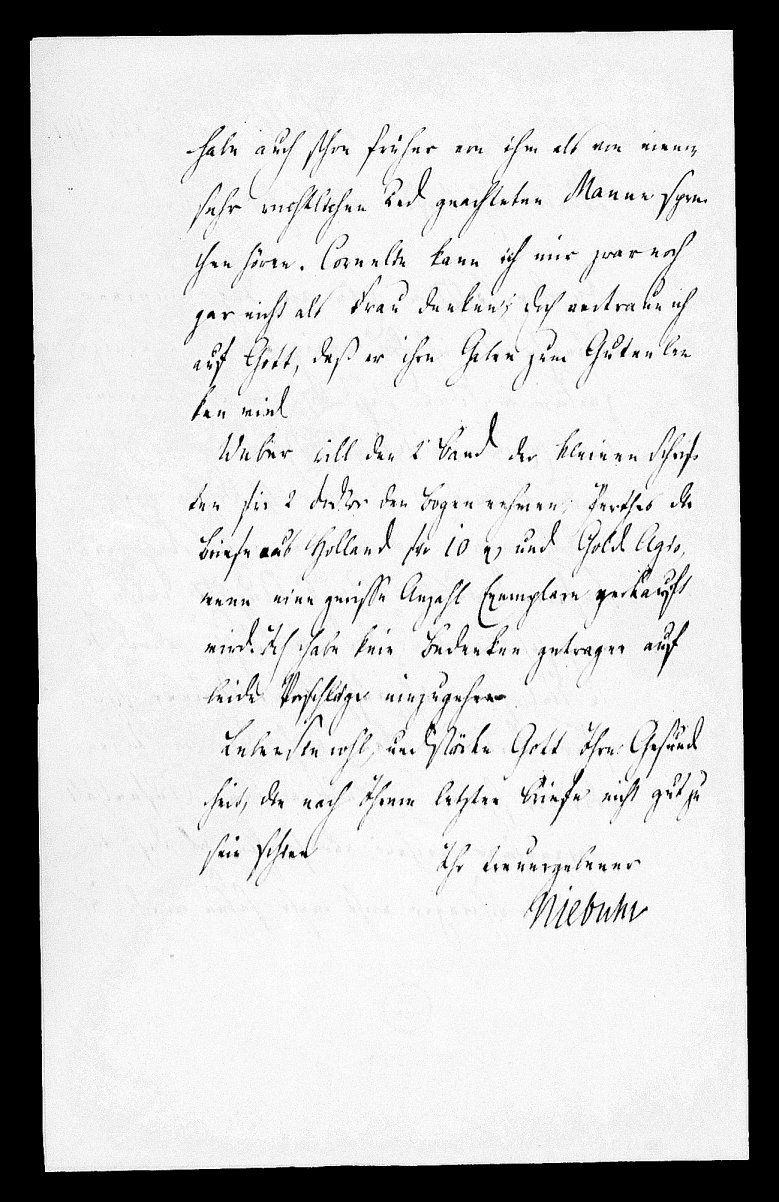 habe auch schon früher von ihm als von einem
sehr rechtlichen und geachteten Manne spre-
chen hören. Cornelia kann ich mir zwar noch
gar nicht als Frau denken; doch vertraue ich
auf Gott, daß er ihre Gaben zum Guten len
ken wird
Weber will den 2 Band der kleinen Schrif-
ten für 2 den Bogen nehmen; Perthes die
Briefe aus Holland für 10 und Gold Agio,
wenn eine gewisse Anzahl Exemplare verkauft
wird. Ich habe kein Bedenken getragen auf
beide Vorschläge einzugehen
Leben Sie wohl, und stärke Gott Ihre Gesund
heit, die nach Ihrem letzten Briefe nicht gut zu
sein schien
Ihr treuergebener
Niebuhr